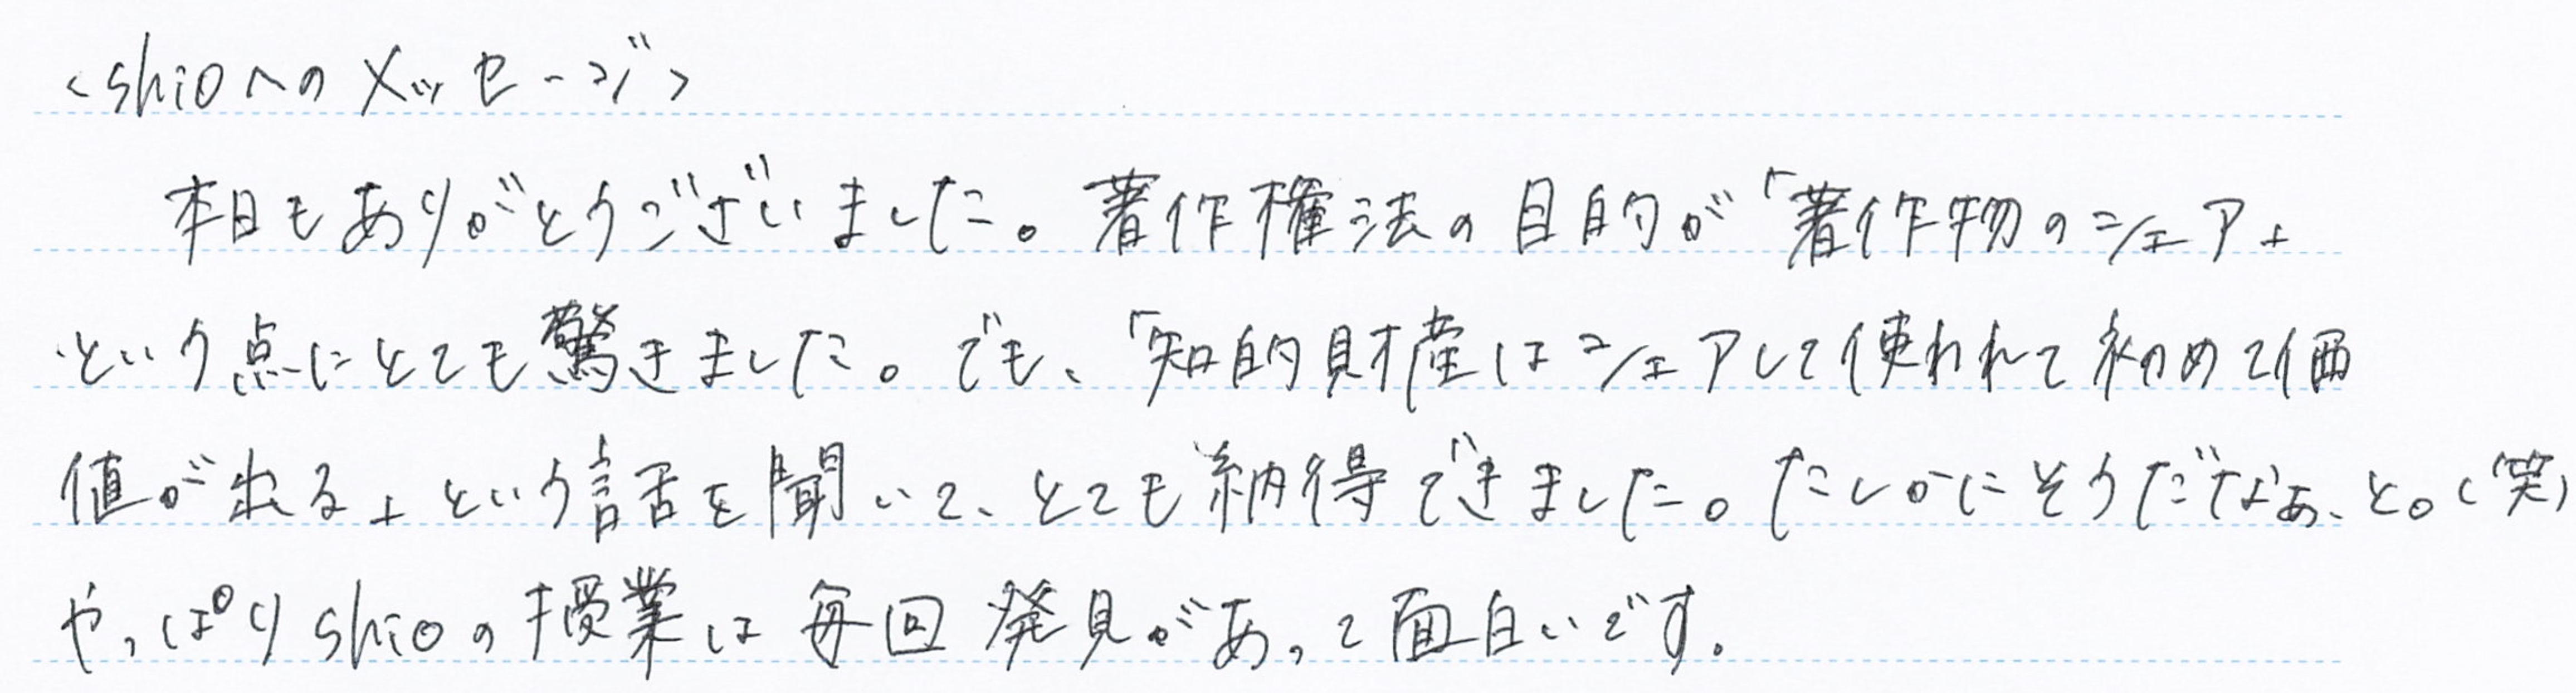 <shioへのメッセージ>
本日もありがとうございました。著作権法の目的が「著作物のシェア」
という点にとても驚きました。でも、「知的財産はシェアして使われて初めて価
値が出る」という話を聞いて、とても納得できました。たしかにそうだなぁ、と。(笑)
やっぱりshioの授業は毎回発見があって面白いです.